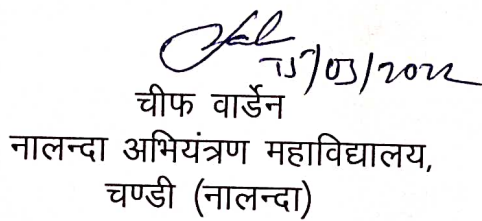 15/03/2022
चीफ वार्डेन
नालन्दा अभियंत्रण महाविद्यालय,
चण्डी (नालन्दा)